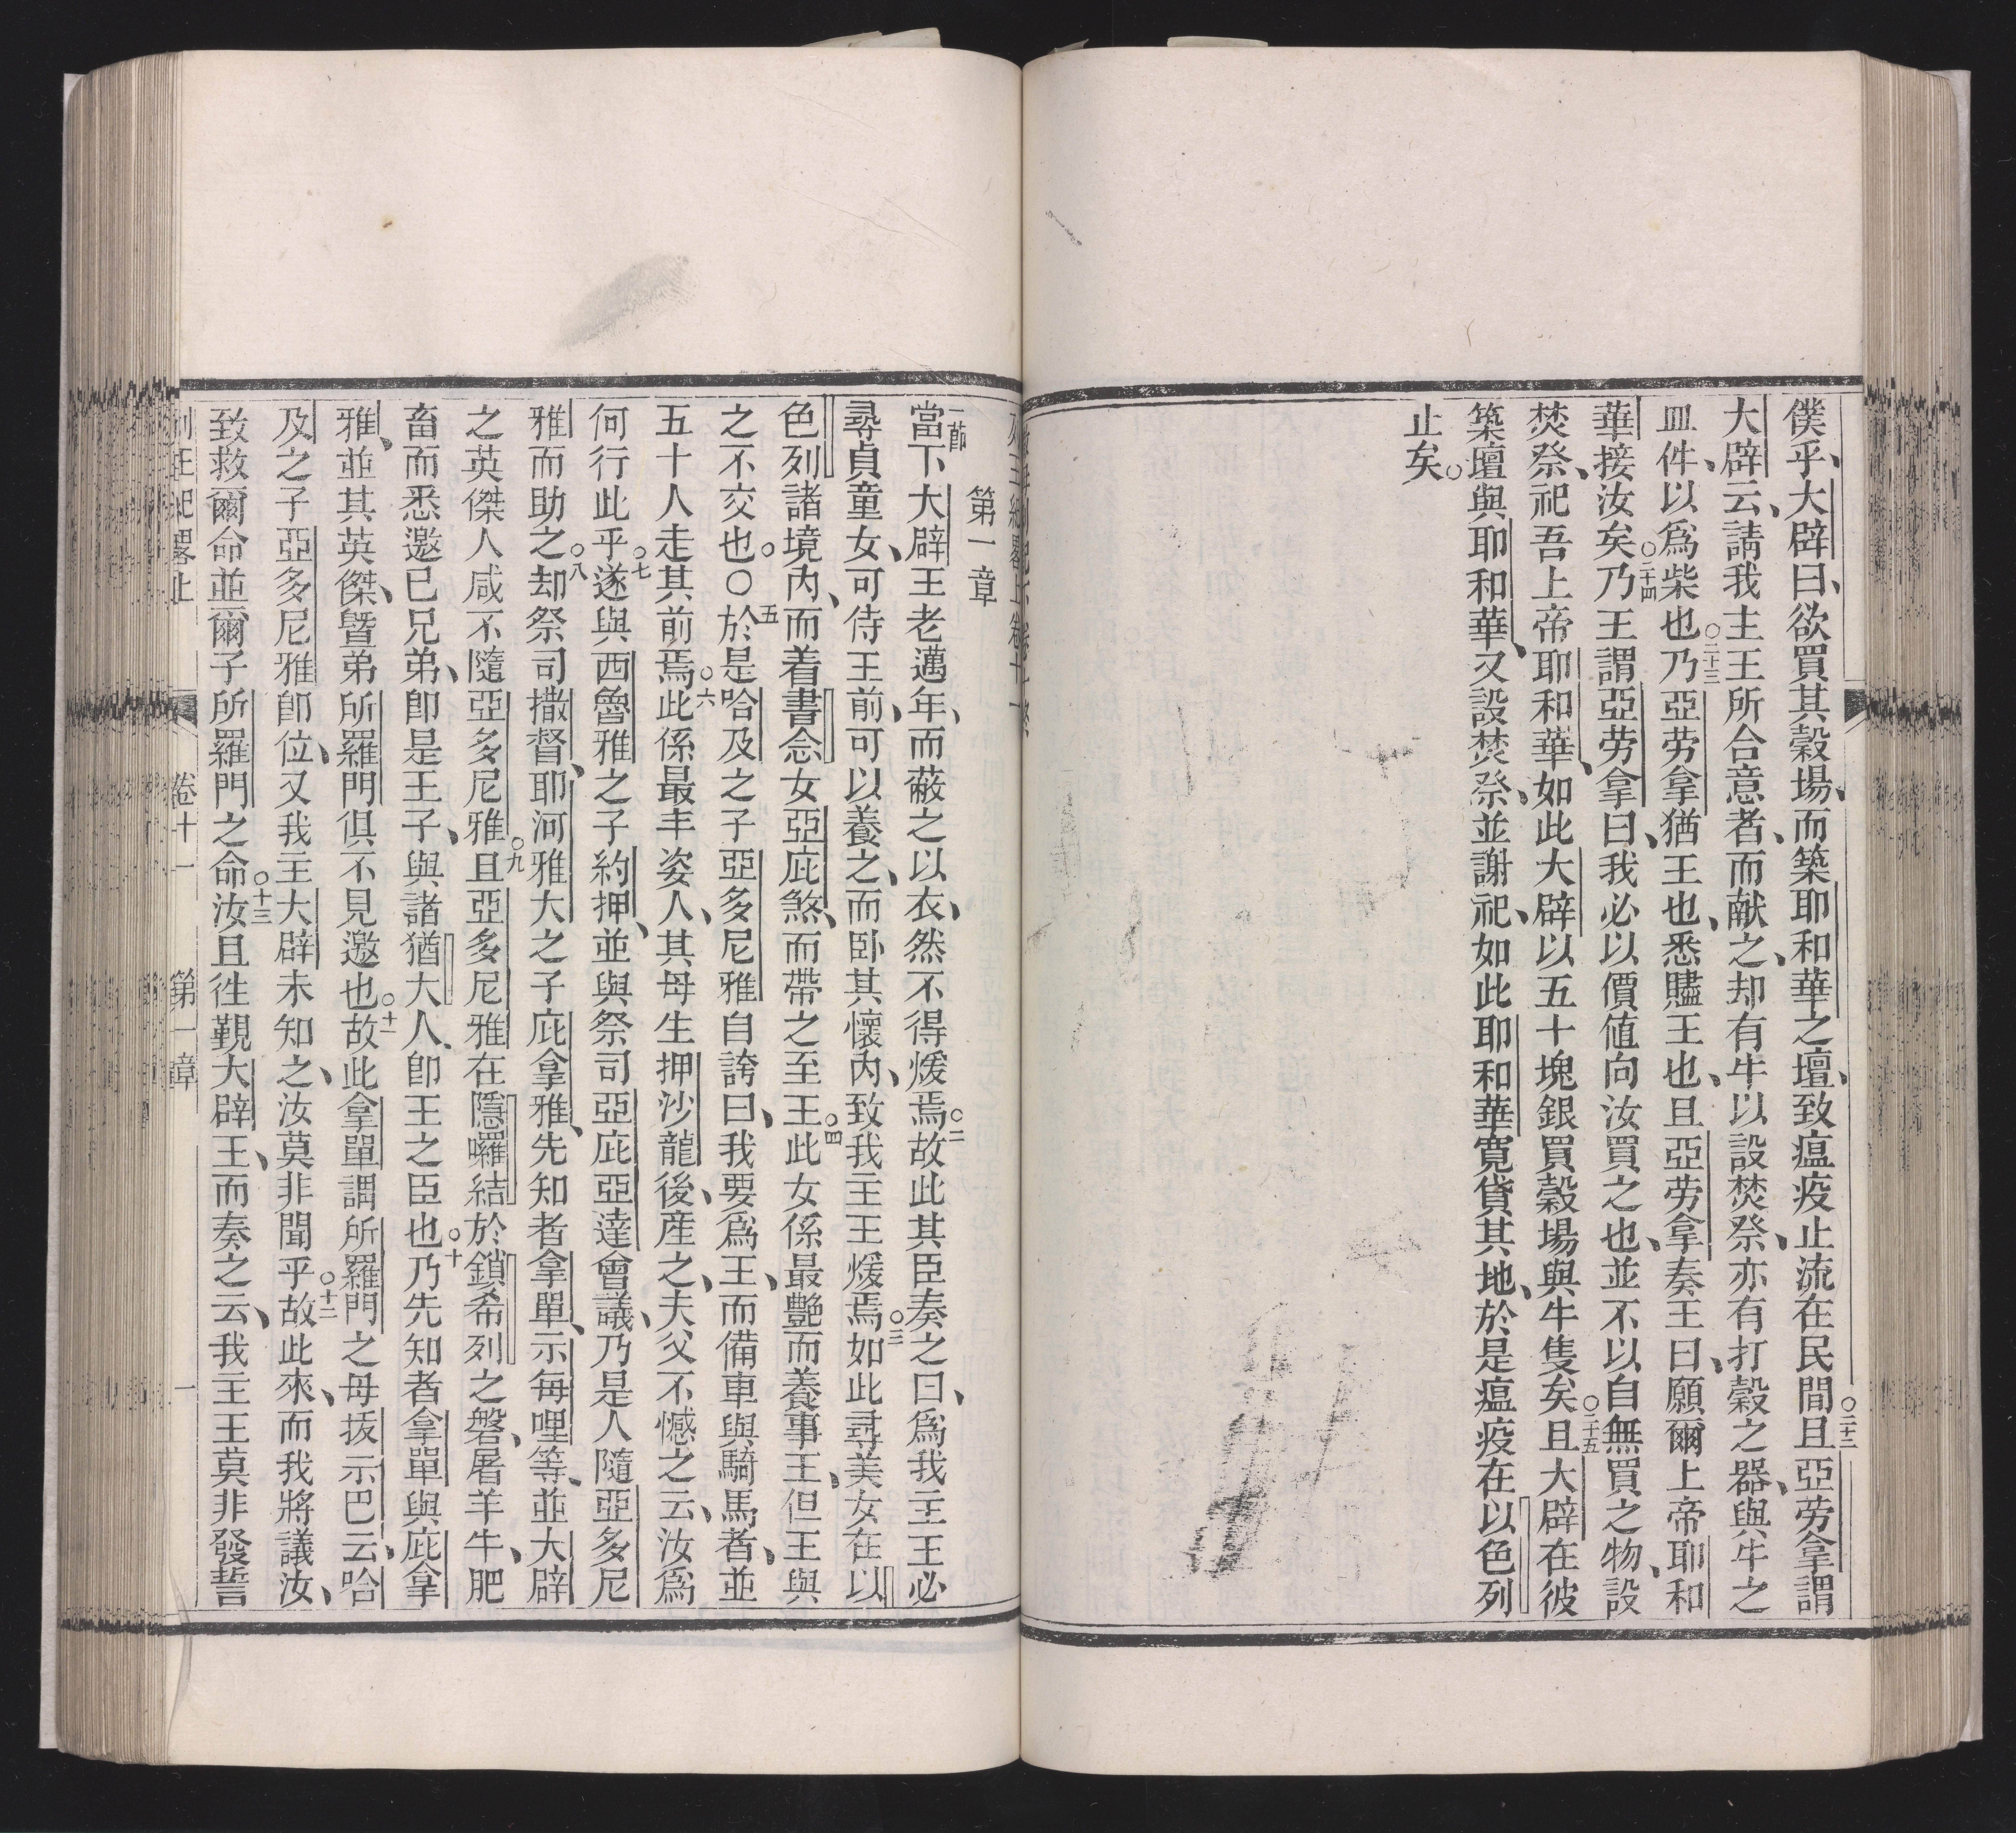 僕乎、大辟曰、欲買其穀場、而築耶和華之壇、致瘟疫止流在民間○二十二且亞劳拿謂
大辟云、請我主王所合意者、而献之、却有牛以設焚祭、亦有打穀之器、與牛之
皿件、以爲柴也○二十三乃亞劳拿猶王也、悉贐王也、且亞劳拿奏王曰、願爾上帝耶和
華接汝矣○二十四乃王謂亞劳拿曰、我必以價値向汝買之也、並不以自無買之物、設
焚祭、祀吾上帝耶和華、如此大辟以五十塊銀買穀場與牛隻矣○二十五且大辟在彼
築壇與耶和華、又設焚祭、並謝祀、如此耶和華寬貸其地、於是瘟疫在以色列
止矣○
第一章
一節當下大辟王老邁年、而蔽之以衣、然不得煖焉○二故此其臣奏之曰、爲我主王必
尋貞童女、可侍王前、可以養之、而卧其懷內、致我主王煖焉○三如此尋美女在以
色列諸境內、而着書念女亞庇煞、而帶之至王○四此女係最艷而養事王、但王與
之不交也○○五於是哈及之子亞多尼雅自誇曰、我要爲王、而備車與騎馬者、並
五十人走其前焉○六此係最丰姿人、其母生押沙龍後、產之、夫父不憾之云、汝爲
何行此乎○七遂與西魯雅之子約押、並與祭司亞庇亞達會議、乃是人隨亞多尼
雅而助之○八却祭司撒督、耶河雅大之子庇拿雅、先知者拿單、示每哩等、並大辟
之英傑人咸不隨亞多尼雅○九且亞多尼雅在隱囉結於鎖希列之磐、屠羊牛、肥
畜而悉邀已兄弟、卽是王子、與諸猶大人、卽王之臣也○十乃先知者拿單與庇拿
雅、並其英傑、暨弟所羅門俱不見邀也○十一故此拿單謂所羅門之母拔示巴云、哈
及之子亞多尼雅卽位、又我主大辟未知之、汝莫非聞乎○十二故此來、而我將議汝、
致救爾命並爾子所羅門之命○十三汝且徃覲大辟王、而奏之云、我主王莫非發誓
列王紀畧上 卷十一 第一章 一